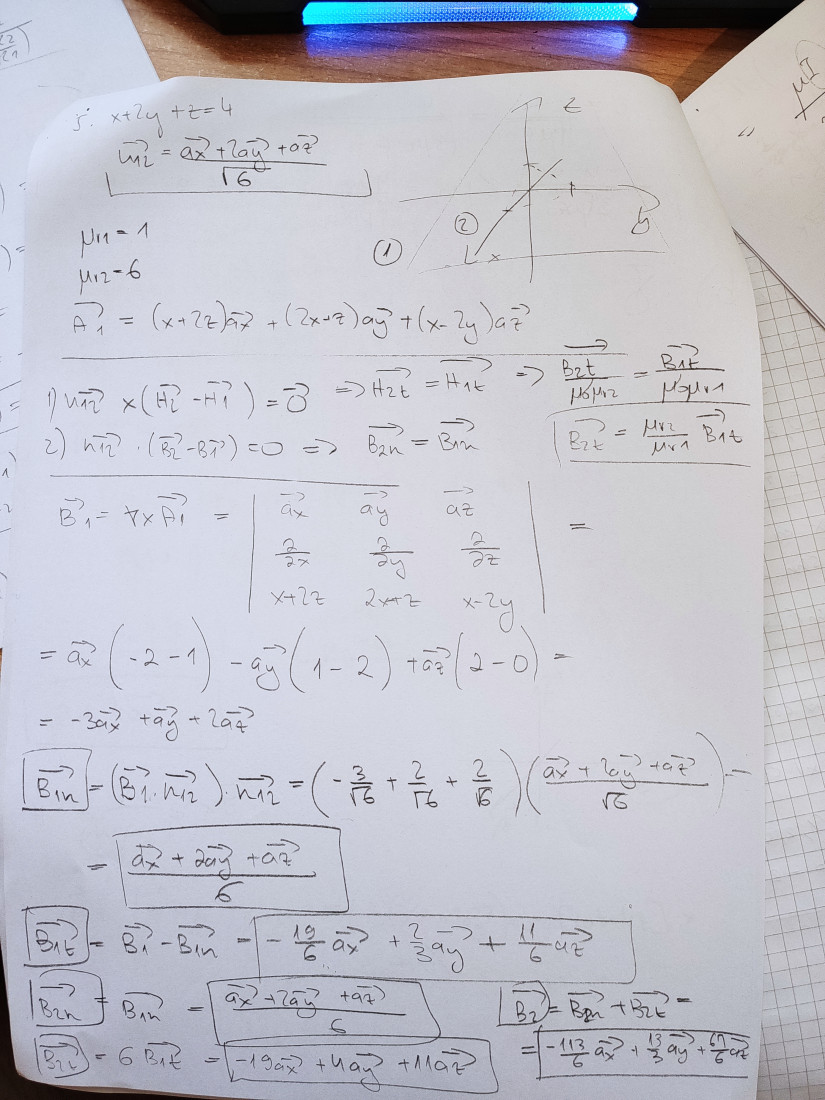 5. x+2y+z=4
n⃗12 = (a⃗x + 2a⃗y + a⃗z)/√6
z
y
x
① ②
μr1 = 1
μr2 = 6
A⃗1 = (x+2z)a⃗x + (2x+z)a⃗y + (x-2y)a⃗z
1) n⃗12 × (H⃗2 - H⃗1) = 0⃗ ⇒ H⃗2t = H⃗1t ⇒ B⃗2t/(μ0μr2) = B⃗1t/(μ0μr1)
2) n⃗12 · (B⃗2 - B⃗1) = 0 ⇒ B⃗2n = B⃗1n
B⃗2t = (μr2/μr1) B⃗1t
B⃗1 = ∇×A⃗1 = | a⃗x a⃗y a⃗z | =
∂/∂x ∂/∂y ∂/∂z
x+2z 2x+z x-2y
= a⃗x(-2-1) - a⃗y(1-2) + a⃗z(2-0) =
= -3a⃗x + a⃗y + 2a⃗z
B⃗1n = (B⃗1 · n⃗12) · n⃗12 = (-3/√6 + 2/√6 + 2/√6)((a⃗x + 2a⃗y + a⃗z)/√6) =
= (a⃗x + 2a⃗y + a⃗z)/6
B⃗1t = B⃗1 - B⃗1n = -19/6 a⃗x + 2/3 a⃗y + 11/6 a⃗z
B⃗2n = B⃗1n = (a⃗x + 2a⃗y + a⃗z)/6
B⃗2t = 6 B⃗1t = -19a⃗x + 4a⃗y + 11a⃗z
B⃗2 = B⃗2n + B⃗2t =
= -113/6 a⃗x + 13/3 a⃗y + 67/6 a⃗z
μI